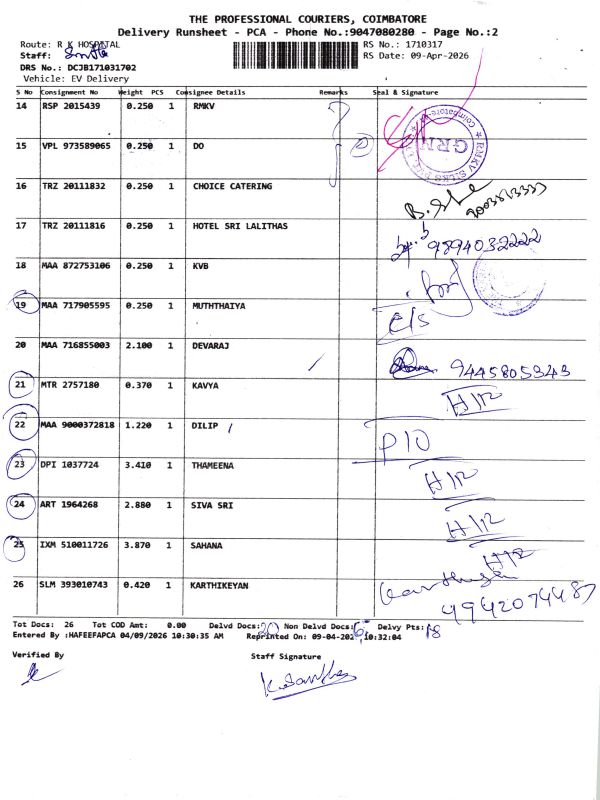 THE PROFESSIONAL COURIERS, COIMBATORE
Delivery Runsheet - PCA - Phone No.:9047080280 - Page No.:2
Route: R K HOSPITAL RS No.: 1710317
Staff: RS Date: 09-Apr-2026
DRS No.: DCJB171031702
Vehicle: EV Delivery
S No Consignment No Weight PCS Consignee Details Remarks Seal & Signature
14 RSP 2015439 0.250 1 RMKV
15 VPL 973589065 0.250 1 DO
16 TRZ 20111832 0.250 1 CHOICE CATERING
17 TRZ 20111816 0.250 1 HOTEL SRI LALITHAS 9894032222
18 MAA 872753106 0.250 1 KVB
19 MAA 717905595 0.250 1 MUTHTHAIYA C/S
20 MAA 716855003 2.100 1 DEVARAJ 9445805343
21 MTR 2757180 0.370 1 KAVYA H/R
22 MAA 9000372818 1.220 1 DILIP P10
23 DPI 1037724 3.410 1 THAMEENA H/R
24 ART 1964268 2.880 1 SIVA SRI H/R
25 IXM 510011726 3.870 1 SAHANA H/R
26 SLM 393010743 0.420 1 KARTHIKEYAN
Tot Docs: 26 Tot COD Amt: 0.00 Delvd Docs: 20 Non Delvd Docs: 6 Delvy Pts: 18
Entered By :HAFEEFAPCA 04/09/2026 10:30:35 AM Reprinted On: 09-04-202 10:32:04
Verified By Staff Signature